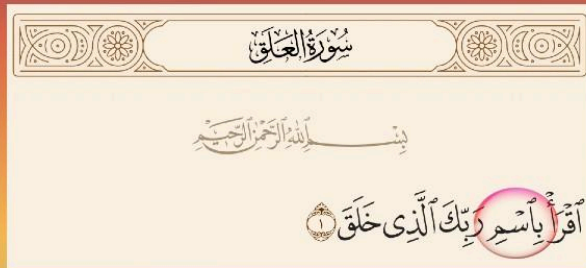 سُورَةُ العَلَقِ
بِسْمِ اللَّهِ الرَّحْمَٰنِ الرَّحِيمِ
ٱقْرَأْ بِٱسْمِ رَبِّكَ ٱلَّذِى خَلَقَ ١